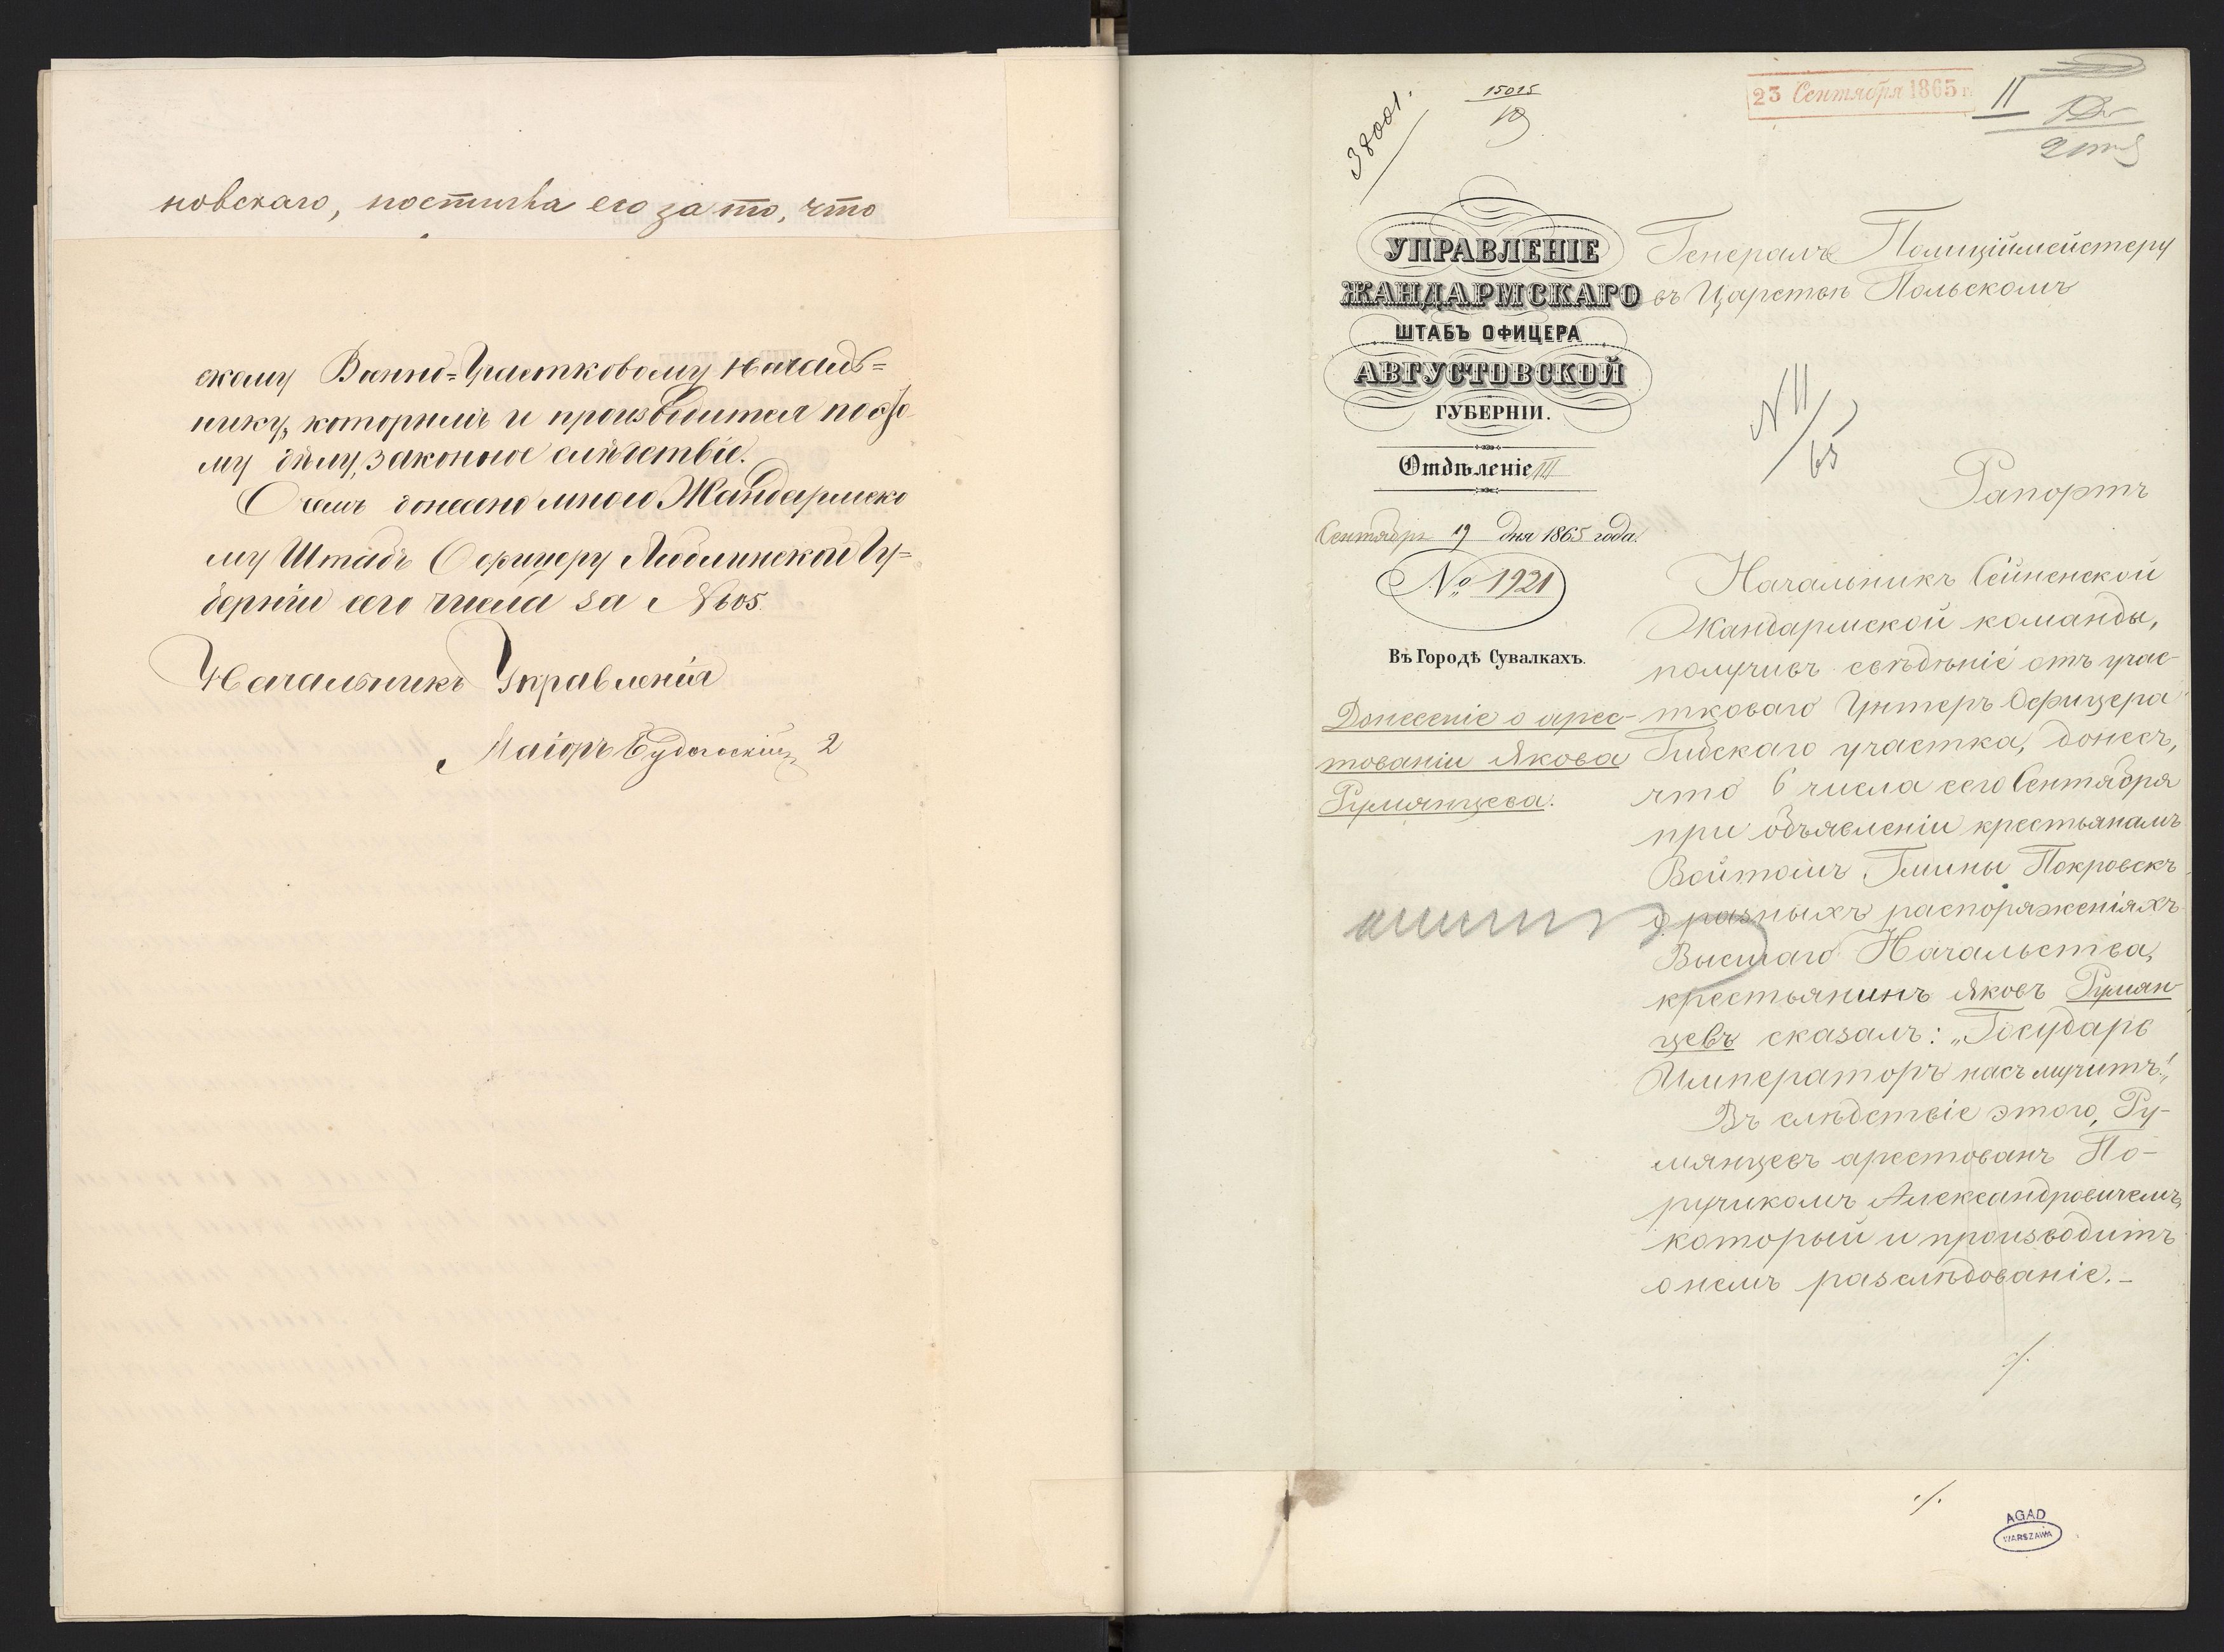 новскаго, постигла его за то, что
скому Военно-Участковому Началь=
нику, которымъ и производится по сѣ
му дѣлу, законное слѣдствіе.
О чемъ донесено мною Жандармско
му Штабъ Офицеру Люблинской Гу=
берніи сего числа за № 605.
Начальникъ Управленія
Маіоръ
2
38001.
15015
19
23 Сентября 1865 г.
II
УПРАВЛЕНІЕ
ЖАНДАРМСКАГО
ШТАБЪ ОФИЦЕРА
АВГУСТОВСКОЙ
ГУБЕРНІИ.
Отдѣленіе III
Сентября 19 дня 1865 года.
№ 1921
Въ Городѣ Сувалкахъ.
Донесеніе о арес-
тованіи Якова
Румянцева.
Генералъ Полиціймейстеру
въ Царствѣ Польскомъ
N II/65
Рапортъ
Начальникъ Сейненской
Жандармской команды,
получивъ свѣдѣніе отъ учас-
тковаго Унтеръ Офицера
Гибскаго участка, донесъ,
что 6 числа сего Сентября
при объявленіи крестьянамъ
Войтомъ Гмины Покровскъ
о разныхъ распоряженіяхъ
Высшаго Начальства,
крестьянинъ Яковъ Румян-
цевъ сказалъ: „Государь
Императоръ насъ мучитъ!„
Въ слѣдствіе этого, Ру-
мянцевъ арестованъ По-
ручикомъ Александровичемъ,
который и производитъ
о немъ разслѣдованіе.-
./.
./.
AGAD
WARSZAWA